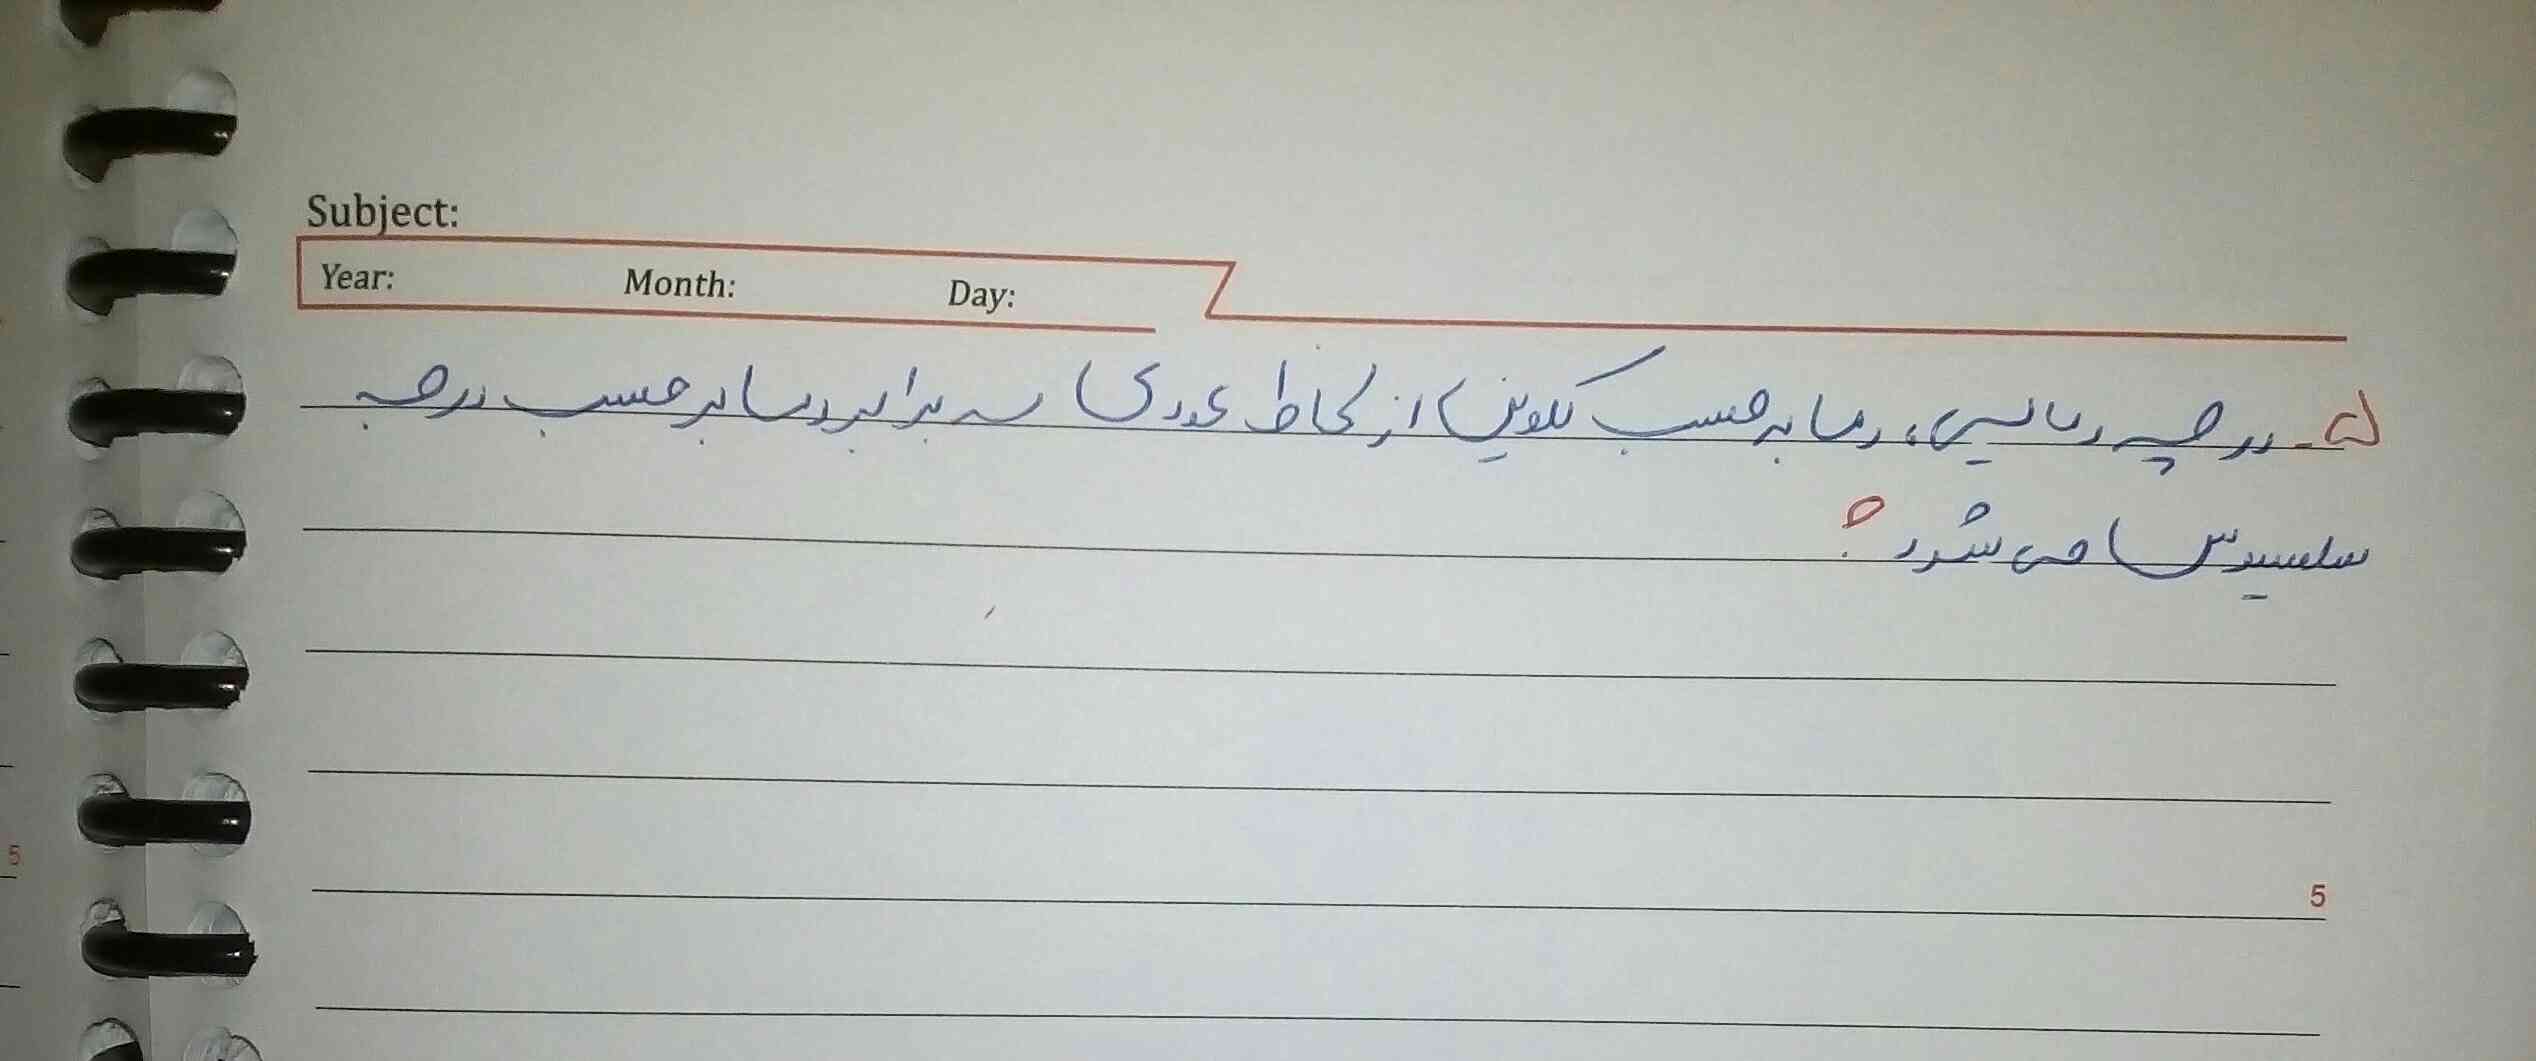 Subject:
Year: Month: Day:
۵- در چه دمایی، دما بر حسب کلوین از لحاظ عددی سه برابر دما بر حسب درجه
سلسیوس می شود؟
5
5